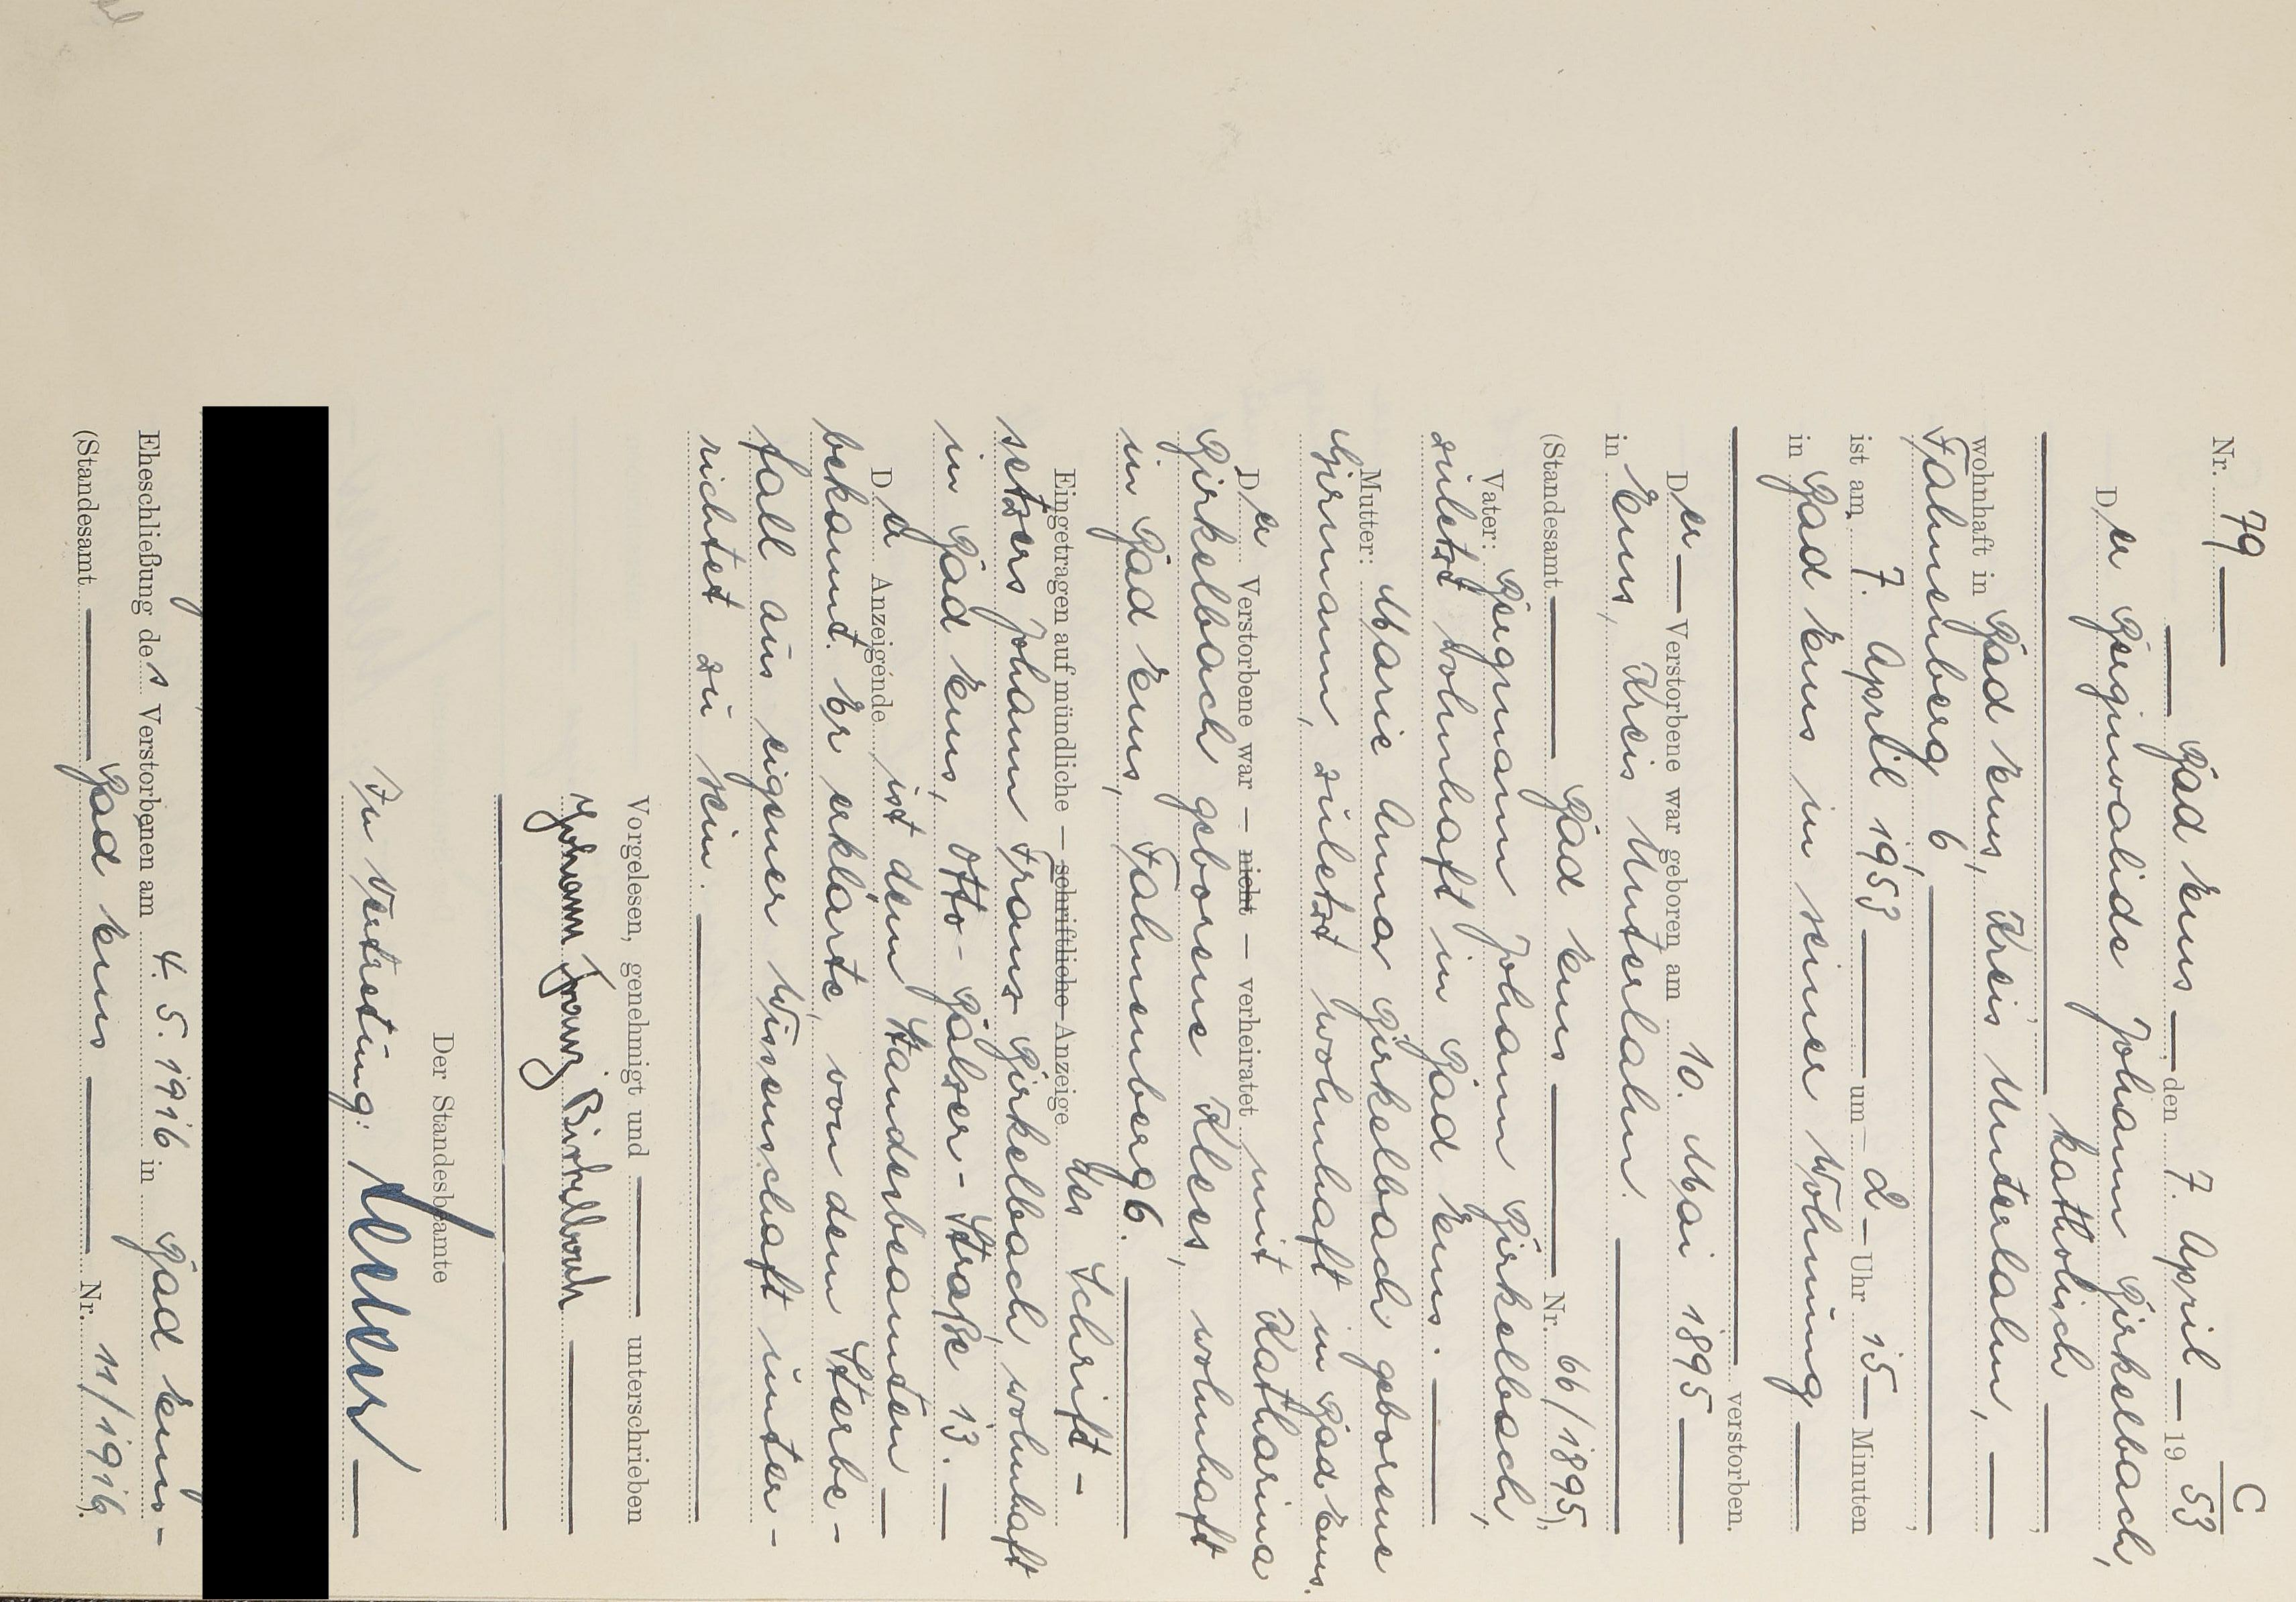 C
Nr. 79
Bad Ems, den 7. April 1953
Der Berginvalide Johann Birkelbach,
katholisch,
wohnhaft in Bad Ems, Kreis Unterlahn,
Fahnenberg 6,
ist am 7. April 1953 um 2 Uhr 15 Minuten
in Bad Ems in seiner Wohnung
verstorben.
Der Verstorbene war geboren am 10. Mai 1895
in Ems, Kreis Unterlahn.
(Standesamt Bad Ems Nr. 66/1895),
Vater: Bergmann Johann Birkelbach,
zuletzt wohnhaft in Bad Ems.
Mutter: Marie Anna Birkelbach geborene
Girmann, zuletzt wohnhaft in Bad Ems.
Der Verstorbene war – nicht – verheiratet mit Katharina
Birkelbach geborene Klees, wohnhaft
in Bad Ems, Fahnenberg 6.
Eingetragen auf mündliche – schriftliche Anzeige des Schrift-
setzers Johann Franz Birkelbach, wohnhaft
in Bad Ems, Otto-Balzer-Straße 13.
D Anzeigende ist dem Standesbeamten
bekannt. Er erklärte, von dem Sterbe-
fall aus eigener Wissenschaft unter-
richtet zu sein.
Vorgelesen, genehmigt und unterschrieben
Johann Franz Birkelbach
Der Standesbeamte
In Vertretung:
Eheschließung des Verstorbenen am 4. 5. 1916 in Bad Ems-
(Standesamt Bad Ems Nr. 11/1916).